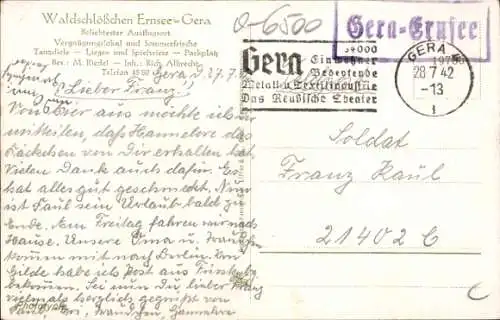 Waldschlößchen Ernsee-Gera
Beliebtester Ausflugsort
Vergnügungslokal und Sommerfrische
Tanzdiele — Liegen und Spielwiese — Parkplatz
Bes.: M. Riedel — Inh.: Rich. Albrecht
Telefon
Gera, d. 27.7.
Lieber Franz!
Von hier aus möchte ich
mitteilen, daß Hannelore das
Päckchen von Dir erhalten hat
Vielen Dank auch dafür. Es
hat alles gut geschmeckt. Nun
ist Paul sein Urlaub bald zu
Ende. Am Freitag fahren wir nach
Hause. Unsere Oma u.
kommen mit nach Berlin. Von
Gilde habe ich Post aus
bekommen. Sei nun Du, lieber Franz
vielmals herzlich gegrüßt von
Hannelore
Phototypie
0-6500
Gera-Ernsee
Gera
Einwohner
Bedeutende
Metall u. Textilindustrie
Das Reußische Theater
GERA
28.7.42
-13
Soldat
Franz Kaul
21402 C